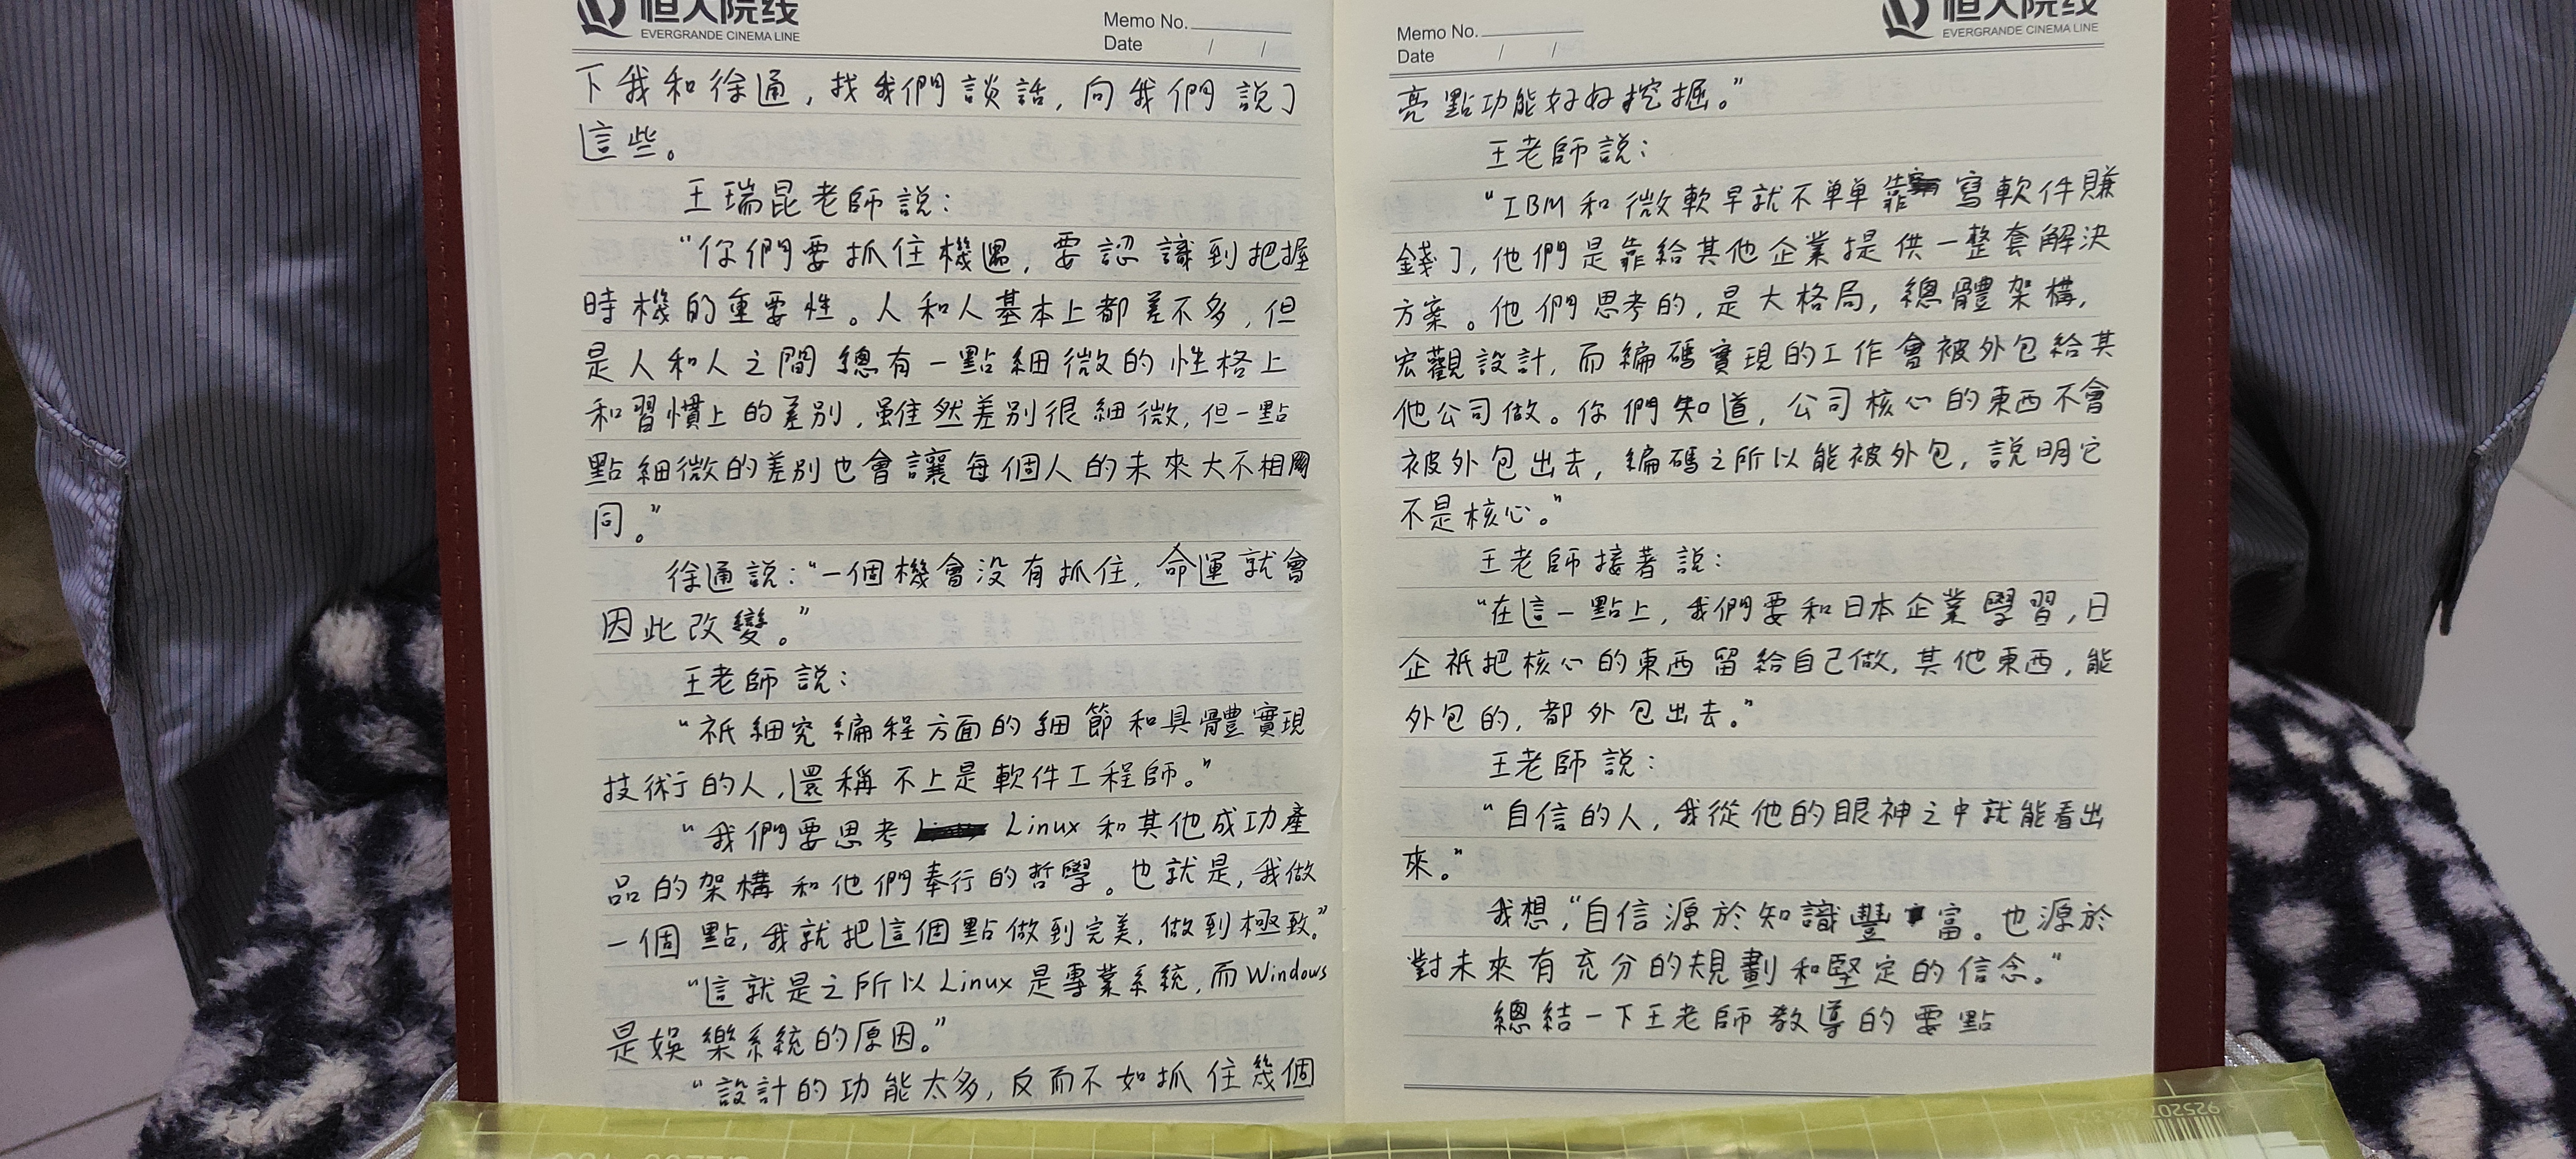 恒大院线
EVERGRANDE CINEMA LINE
Memo No.
Date / /
下我和徐通,找我們談話,向我們說了
這些。
王瑞昆老師說:
“你們要抓住機遇,要認識到把握
時機的重要性。人和人基本上都差不多,但
是人和人之間總有一點細微的性格上
和習慣上的差別,雖然差別很細微,但一點
點細微的差別也會讓每個人的未來大不相
同。”
徐通說:“一個機會没有抓住,命運就會
因此改變。”
王老師說:
“祇細究編程方面的細節和具體實現
技術的人,還稱不上是軟件工程師。”
“我們要思考 Linux 和其他成功產
品的架構和他們奉行的哲學。也就是,我做
一個點,我就把這個點做到完美,做到極致。”
“這就是之所以Linux是專業系統,而Windows
是娛樂系統的原因。”
“設計的功能太多,反而不如抓住幾個
恒大院线
EVERGRANDE CINEMA LINE
Memo No.
Date / /
亮點功能好好挖掘。”
王老師說:
“IBM和微軟早就不單單靠寫軟件賺
錢了,他們是靠給其他企業提供一整套解決
方案。他們思考的,是大格局,總體架構,
宏觀設計,而編碼實現的工作會被外包給其
他公司做。你們知道,公司核心的東西不會
被外包出去,編碼之所以能被外包,說明它
不是核心。”
王老師接著說:
“在這一點上,我們要和日本企業學習,日
企祇把核心的東西留給自己做,其他東西,能
外包的,都外包出去。”
王老師說:
“自信的人,我從他的眼神之中就能看出
來。”
我想,“自信源於知識豐富。也源於
對未來有充分的規劃和堅定的信念。”
總結一下王老師教導的要點